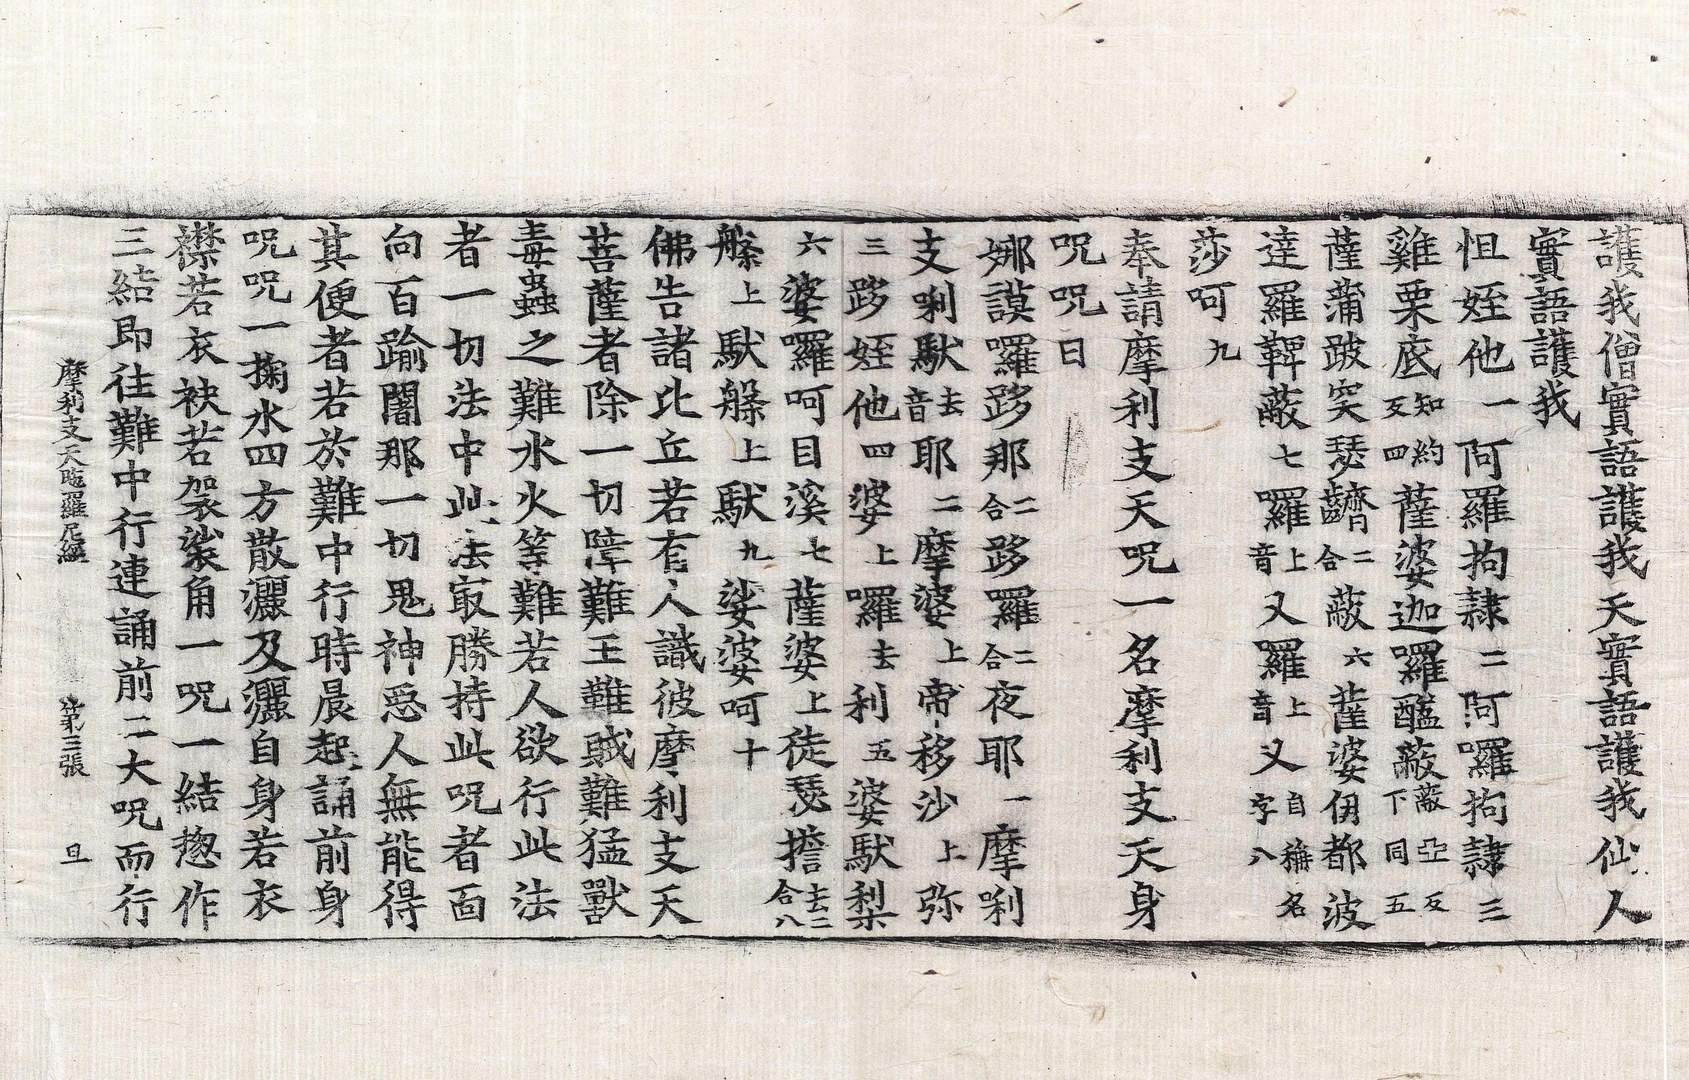 護我僧實語護我天實語護我仙人
實語護我
怛姪他一阿羅拘隷二阿囉拘隷三
雞栗底知約反四薩婆迦囉醯蔽蔽亞反下同五
薩蒲跛突瑟齊二合蔽六薩婆伊都波
達羅鞞蔽七羅上音又羅上音又自稱名字八
莎呵九
奉請摩利支天呪一名摩利支天身
呪呪曰
娜謨囉跢那二合跢羅二合夜耶一摩唎
支唎馱去音耶二摩婆上帝移沙上弥
三跢姪他四婆上囉去利五婆馱梨
六婆囉呵目溪七薩婆上徒瑟擔去二合八
槃上馱槃上馱九娑婆呵十
佛告諸比丘若有人識彼摩利支天
菩薩者除一切障難王難賊難猛獸
毒蟲之難水火等難若人欲行此法
者一切法中此法㝡勝持此呪者面
向百踰闍那一切鬼神惡人無能得
其便者若於難中行時晨起誦前身
呪呪一掬水四方散灑及灑自身若衣
襟若衣袂若袈裟角一呪一結惣作
三結即往難中行連誦前二大呪而行
摩利支天陁羅尼經 第三張 旦